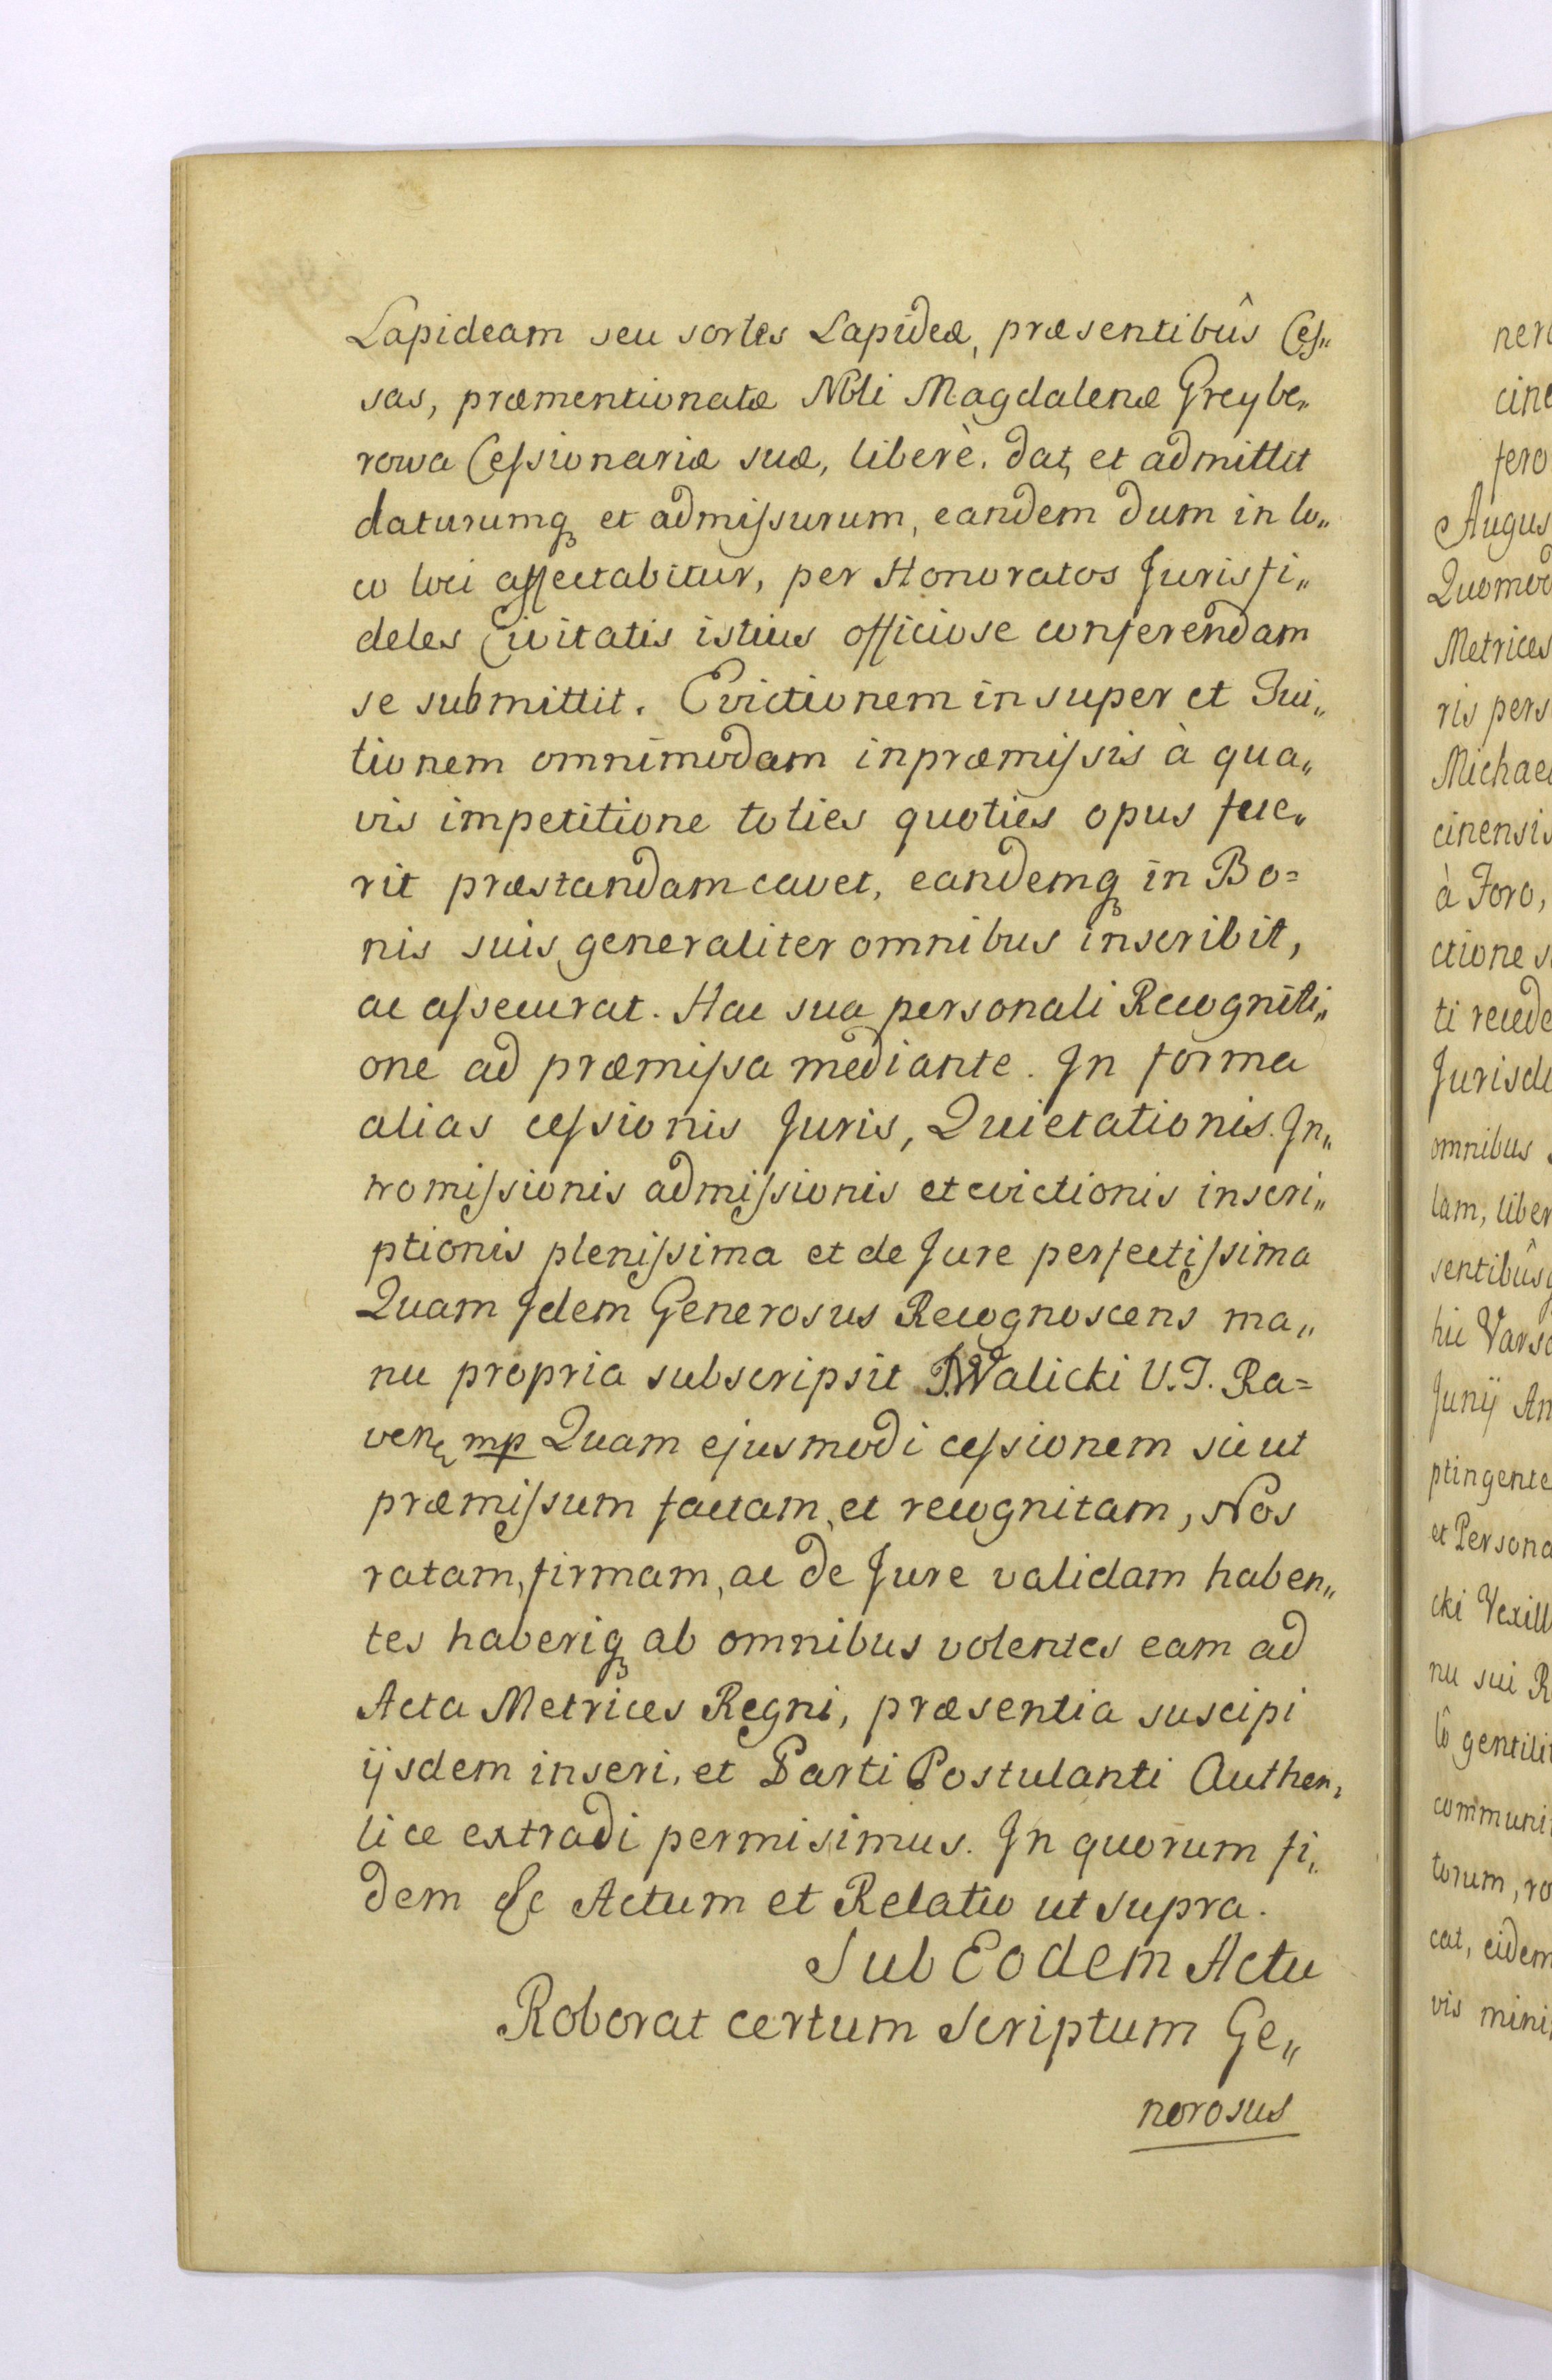 Lapideam seu sortes Lapideæ, præsentibûs Ces„
sas, præmentionatæ Nbli Magdalenæ Greybe„
rowa Cessionariæ suæ, liberè. dat, et admittit
daturumq et admissurum, eandem dum in lo„
co loci affectabitur, per Honoratos Jurisfi„
deles Civitatis istius officiose conferendam
se submittit. Evictionem insuper et Tui„
tionem omnimodam inpræmissis à qua„
vis impetitione toties quoties opus fue„
rit præstandam cavet, eandemq in Bo=
nis suis generaliter omnibus inscribit,
ac assecurat. Hac sua personali Recogniti„
one ad præmissa mediante. In forma
alias cessionis Juris, Quietationis. In„
tromissionis admissionis et evictionis inscri„
ptionis plenissima et de Jure perfectissima
Quam Idem Generosus Recognoscens ma„
nu propria subscripsit J.Walicki V.T. Ra=
ven. mp Quam ejusmodi cessionem sicut
præmissum factam, et recognitam, Nos
ratam, firmam, ac de Jure validam haben„
tes haberiq ab omnibus volentes eam ad
Acta Metrices Regni, præsentia suscipi
ijsdem inseri, et Parti Postulanti Authen„
tice extradi permisimus. In quorum fi„
dem &c Actum et Relatio ut supra.
Sub Eodem Actu
Roborat certum Scriptum Ge„
nerosus
cine
fero
Augus
Quomod
Metrices
ris pers
Michae
cinensis
à Foro,
ctione s
ti recede
Jurisdi
omnibus
lam, liber
sentibûsq
hic Varso
Junij An
ptingente
et Persona
cki Vexill
nu sui R
lô gentili
communi
torum, ro
cat, eidem
vis mini